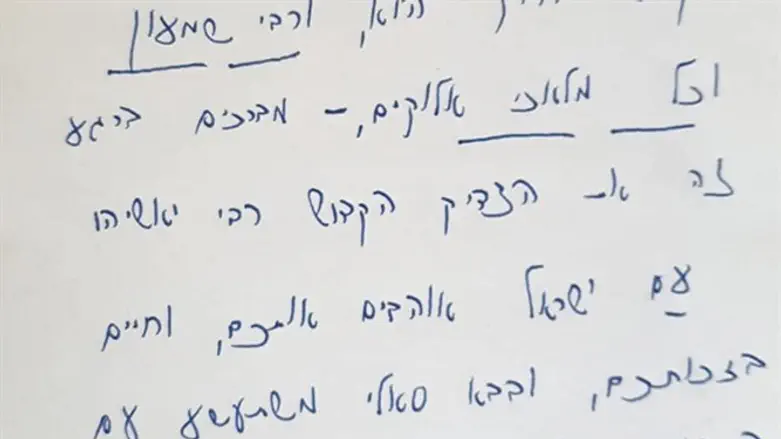 הוא, ורבי שמעון
וכל מלאכי אלוקים, - מברכים ברגע
זה את הצדיק הקדוש רבי יאשיהו
עם ישראל אוהבים אותכם, וחיים
בזכותכם, ובבא סאלי משתעשע עם